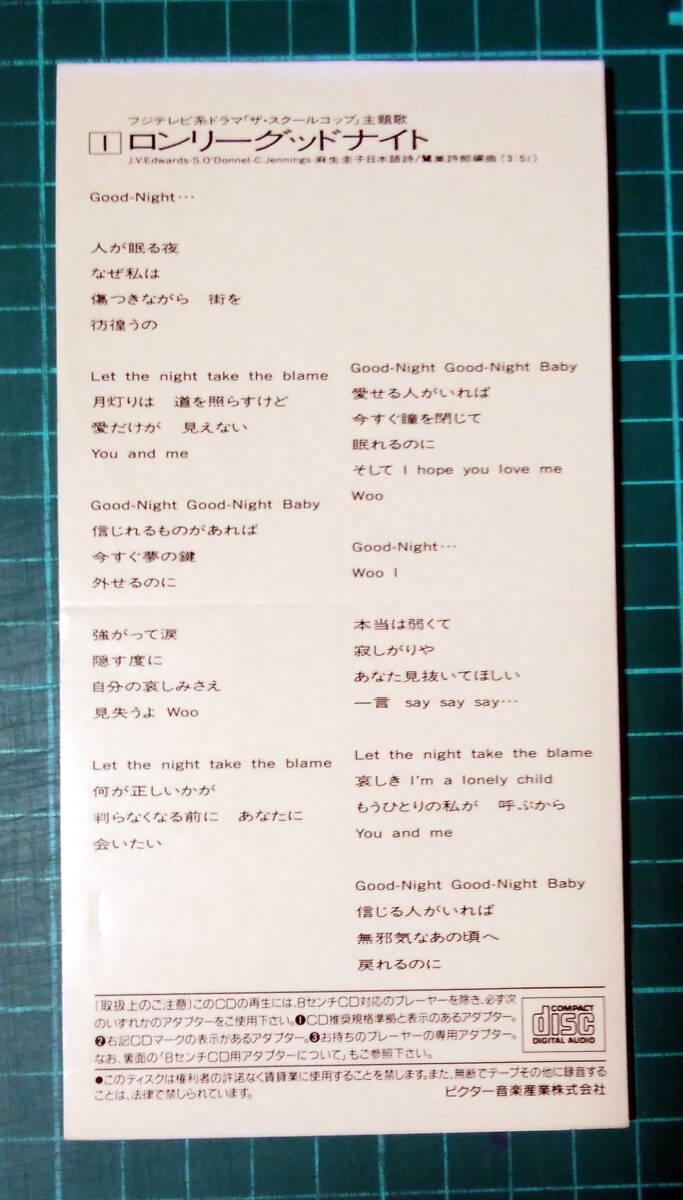 フジテレビ系ドラマ「ザ・スクールコップ」主題歌
1 ロンリーグッドナイト
J.V.Edwards-S.O'Donnel-C.Jennings 麻生圭子日本語詩/鷺巣詩郎編曲(3:51)
Good-Night…
人が眠る夜
なぜ私は
傷つきながら　街を
彷徨うの
Let the night take the blame
月灯りは　道を照らすけど
愛だけが　見えない
You and me
Good-Night Good-Night Baby
信じれるものがあれば
今すぐ夢の鍵
外せるのに
強がって涙
隠す度に
自分の哀しみさえ
見失うよ Woo
Let the night take the blame
何が正しいかが
判らなくなる前に　あなたに
会いたい
Good-Night Good-Night Baby
愛せる人がいれば
今すぐ瞳を閉じて
眠れるのに
そして I hope you love me
Woo
Good-Night…
Woo I
本当は弱くて
寂しがりや
あなた見抜いてほしい
一言　say say say…
Let the night take the blame
哀しき I'm a lonely child
もうひとりの私が　呼ぶから
You and me
Good-Night Good-Night Baby
信じる人がいれば
無邪気なあの頃へ
戻れるのに
(取扱上のご注意)このCDの再生には、8センチCD対応のプレーヤーを除き、必ず次
のいずれかのアダプターをご使用下さい。❶CD推奨規格準拠と表示のあるアダプター。
❷右記CDマークの表示があるアダプター。❸お持ちのプレーヤーの専用アダプター。
なお、裏面の「8センチCD用アダプターについて」もご参照下さい。
COMPACT
disc
DIGITAL AUDIO
●このディスクは権利者の許諾なく賃貸業に使用することを禁します。また、無断でテープその他に録音する
ことは、法律で禁しられています。
ビクター音楽産業株式会社